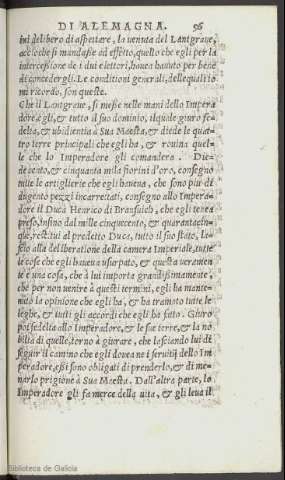 DI ALEMAGNA. 56
ini deliberò di aspettare, la venuta del Lantgraue,
acciò che si mandasse ad effetto, quello che egli per la
intercessione de i dui elettori, houea hauuto per bene
di concedergli. Le conditioni generali, delle quali io
mi ricordo, son queste.
Che il Lantgraue, si messe nelle mani dello Impera
dore, egli, & tutto il suo dominio, il quale giuro fe-
deltà, & ubidientia à Sua Maestà, & diede le quat-
tro terre principali che egli ha, & rouina quel-
le che lo Imperadore gli comandera. Die-
de cento, & cinquanta mila fiorini d'oro, consegno
tutte le artiglierie che egli haueua, che sono piu di
dugento pezzi incarrettati, consegno allo Impera-
dore il Duca Henrico di Bransuich, che egli tenea
preso, insino dal mille cinquecento, & quarantacin-
que, restitui al predetto Duca, tutto il suo stato, la-
scio alla deliberatione della camera Imperiale, tutte
le cose che egli haueua usurpato, & questa ueramen
te è una cosa, che à lui importa grandissimamente,
che per non uenire à questi termini, egli ha mante-
nuto la opinione che egli ha, & ha tramato tutte le
leghe, & tutti gli accordi che egli ha fatto. Giuro
poi fedeltà allo Imperadore, & le sue terre, & la no
biltà di quelle, torno à giurare, che lasciando lui di
seguir il camino che egli douea ne i seruitij dello Im
peradore, essi sono obligati di prenderlo, & di me-
narlo prigione à Sua Maestà. Dall'altra parte, lo
Imperadore gli fa merce della uita, & gli leua il
Biblioteca de Galicia